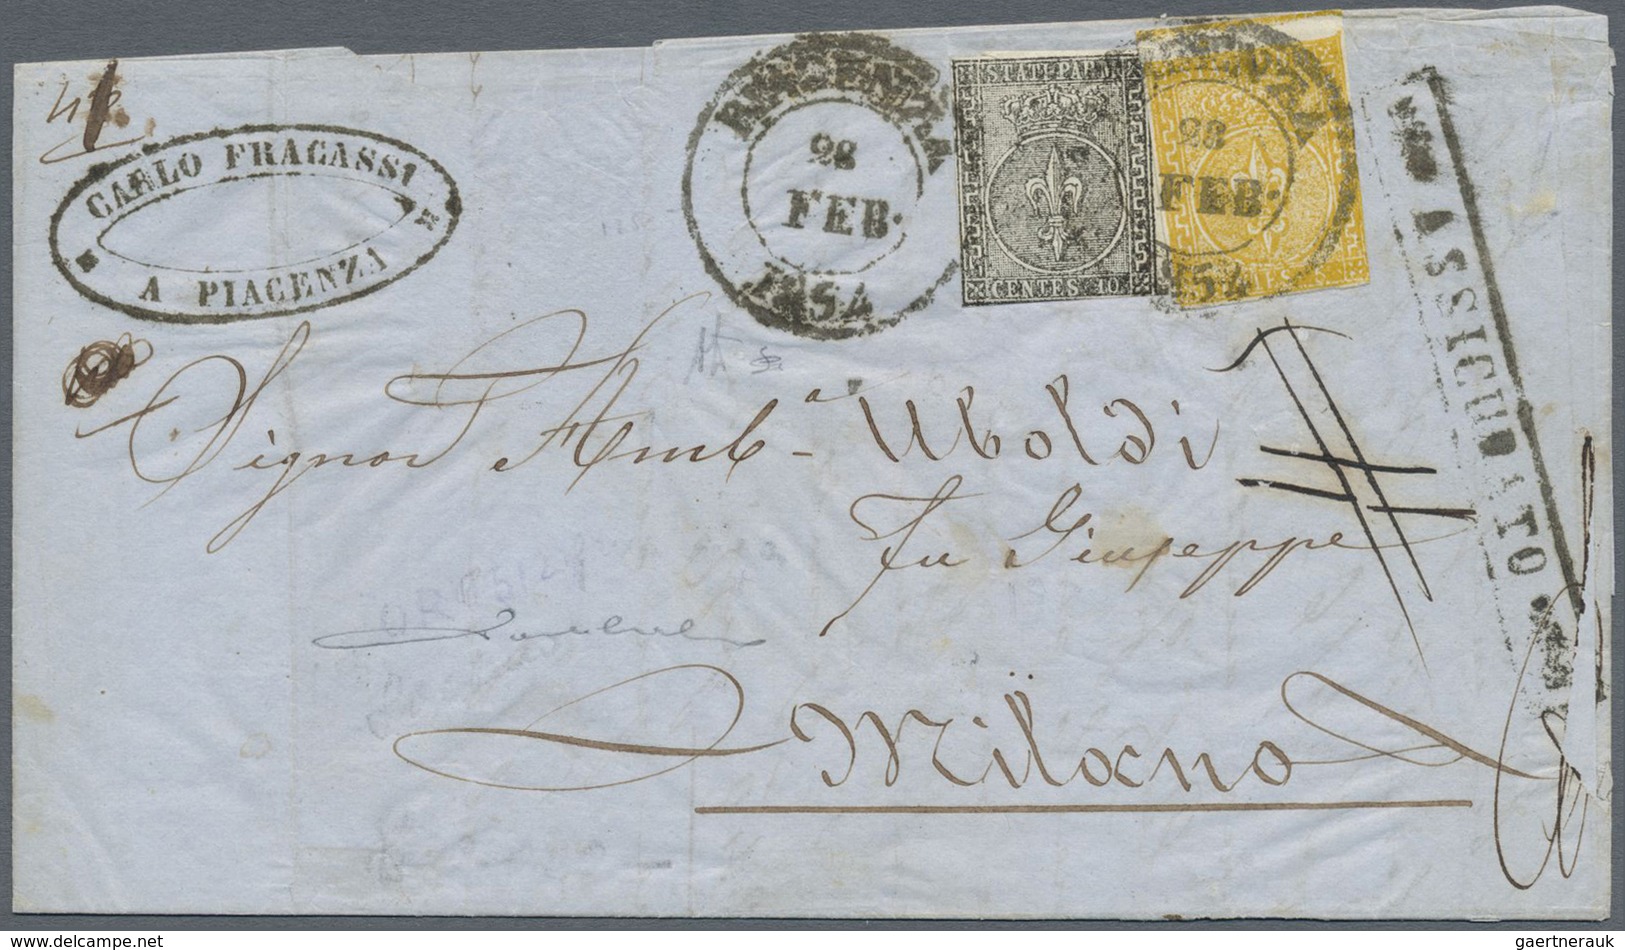 CARLO FRACASSI
A PIACENZA
PIACENZA
28
FEB.
1854
STATI PARM
CENTES. 10
28
FEB.
1854
ASSICURATO
Signor Amb.a Uboldi
fu Giuseppe
Milano
www.delcampe.net
gaertnerauk